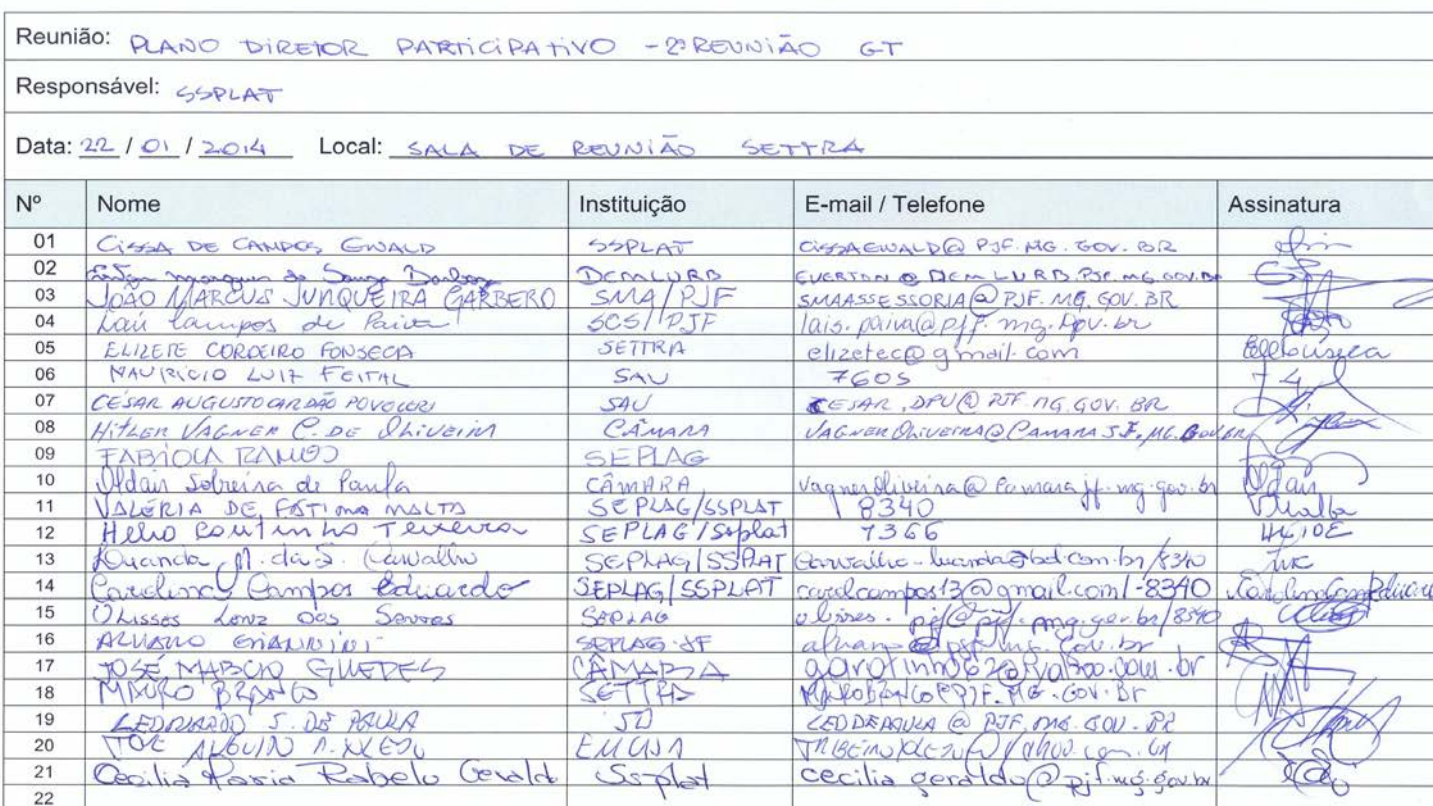 Reunião: PLANO DIRETOR PARTICIPATIVO - 2ª REUNIÃO GT
Responsável: SSPLAT
Data: 22 / 01 / 2014 Local: SALA DE REUNIÃO SETTRA
Nº Nome Instituição E-mail / Telefone Assinatura
01 CISSA DE CAMPOS EWALD SSPLAT CISSAEWALD@PJF.MG.GOV.BR
02 marques de Souza Barbosa DEMLURB EVERTON@DEMLURB.PJF.MG.GOV.BR
03 JOÃO MARCUS JUNQUEIRA GARBERO SMA/PJF SMAASSESSORIA@PJF.MG.GOV.BR
04 Laís Campos de Paiva SCS/PJF lais.paiva@pjf.mg.gov.br
05 ELIZETE CORDEIRO FONSECA SETTRA elizetec@gmail.com
06 MAURICIO LUIZ FEITAL SAU 7605
07 CÉSAR AUGUSTO CARDÃO POVOLERI SAU CESAR.DPU@PJF.MG.GOV.BR
08 HITLER VAGNER C. DE OLIVEIRA CÂMARA VAGNEROLIVEIRA@CAMARAJF.MG.GOV.BR
09 FABIOLA RAMOS SEPLAG
10 Oldair Sobreira de Paula CÂMARA vagneroliveira@camarajf.mg.gov.br Oldair
11 VALÉRIA DE FÁTIMA MALTA SEPLAG/SSPLAT 8340 VMalta
12 Helio Coutinho Teixeira SEPLAG/Ssplat 7366
13 Luanda M. da S. Carvalho SEPLAG/SSPLAT carvalho-luanda@bol.com.br/8340
14 Carolina Campos Eduardo SEPLAG/SSPLAT carolcampos13@gmail.com/-8340 Carolina Campos Eduardo
15 Ulisses dos Santos SEPLAG ulisses.pjf@pjf.mg.gov.br/8340
16 ALVARO GIANNINI SEPLAG-JF
17 JOSÉ MÁRCIO GUEDES CÂMARA garotinho62@yahoo.com.br
18 MAURO BRANCO SETTRA MAUROBRANCO@PJF.MG.GOV.BR
19 LEONARDO S. DE PAULA LEODEPAULA@PJF.MG.GOV.BR
20
21 Cecilia Maria Rabelo Geraldo Ssplat cecilia geraldo@pjf.mg.gov.br
22